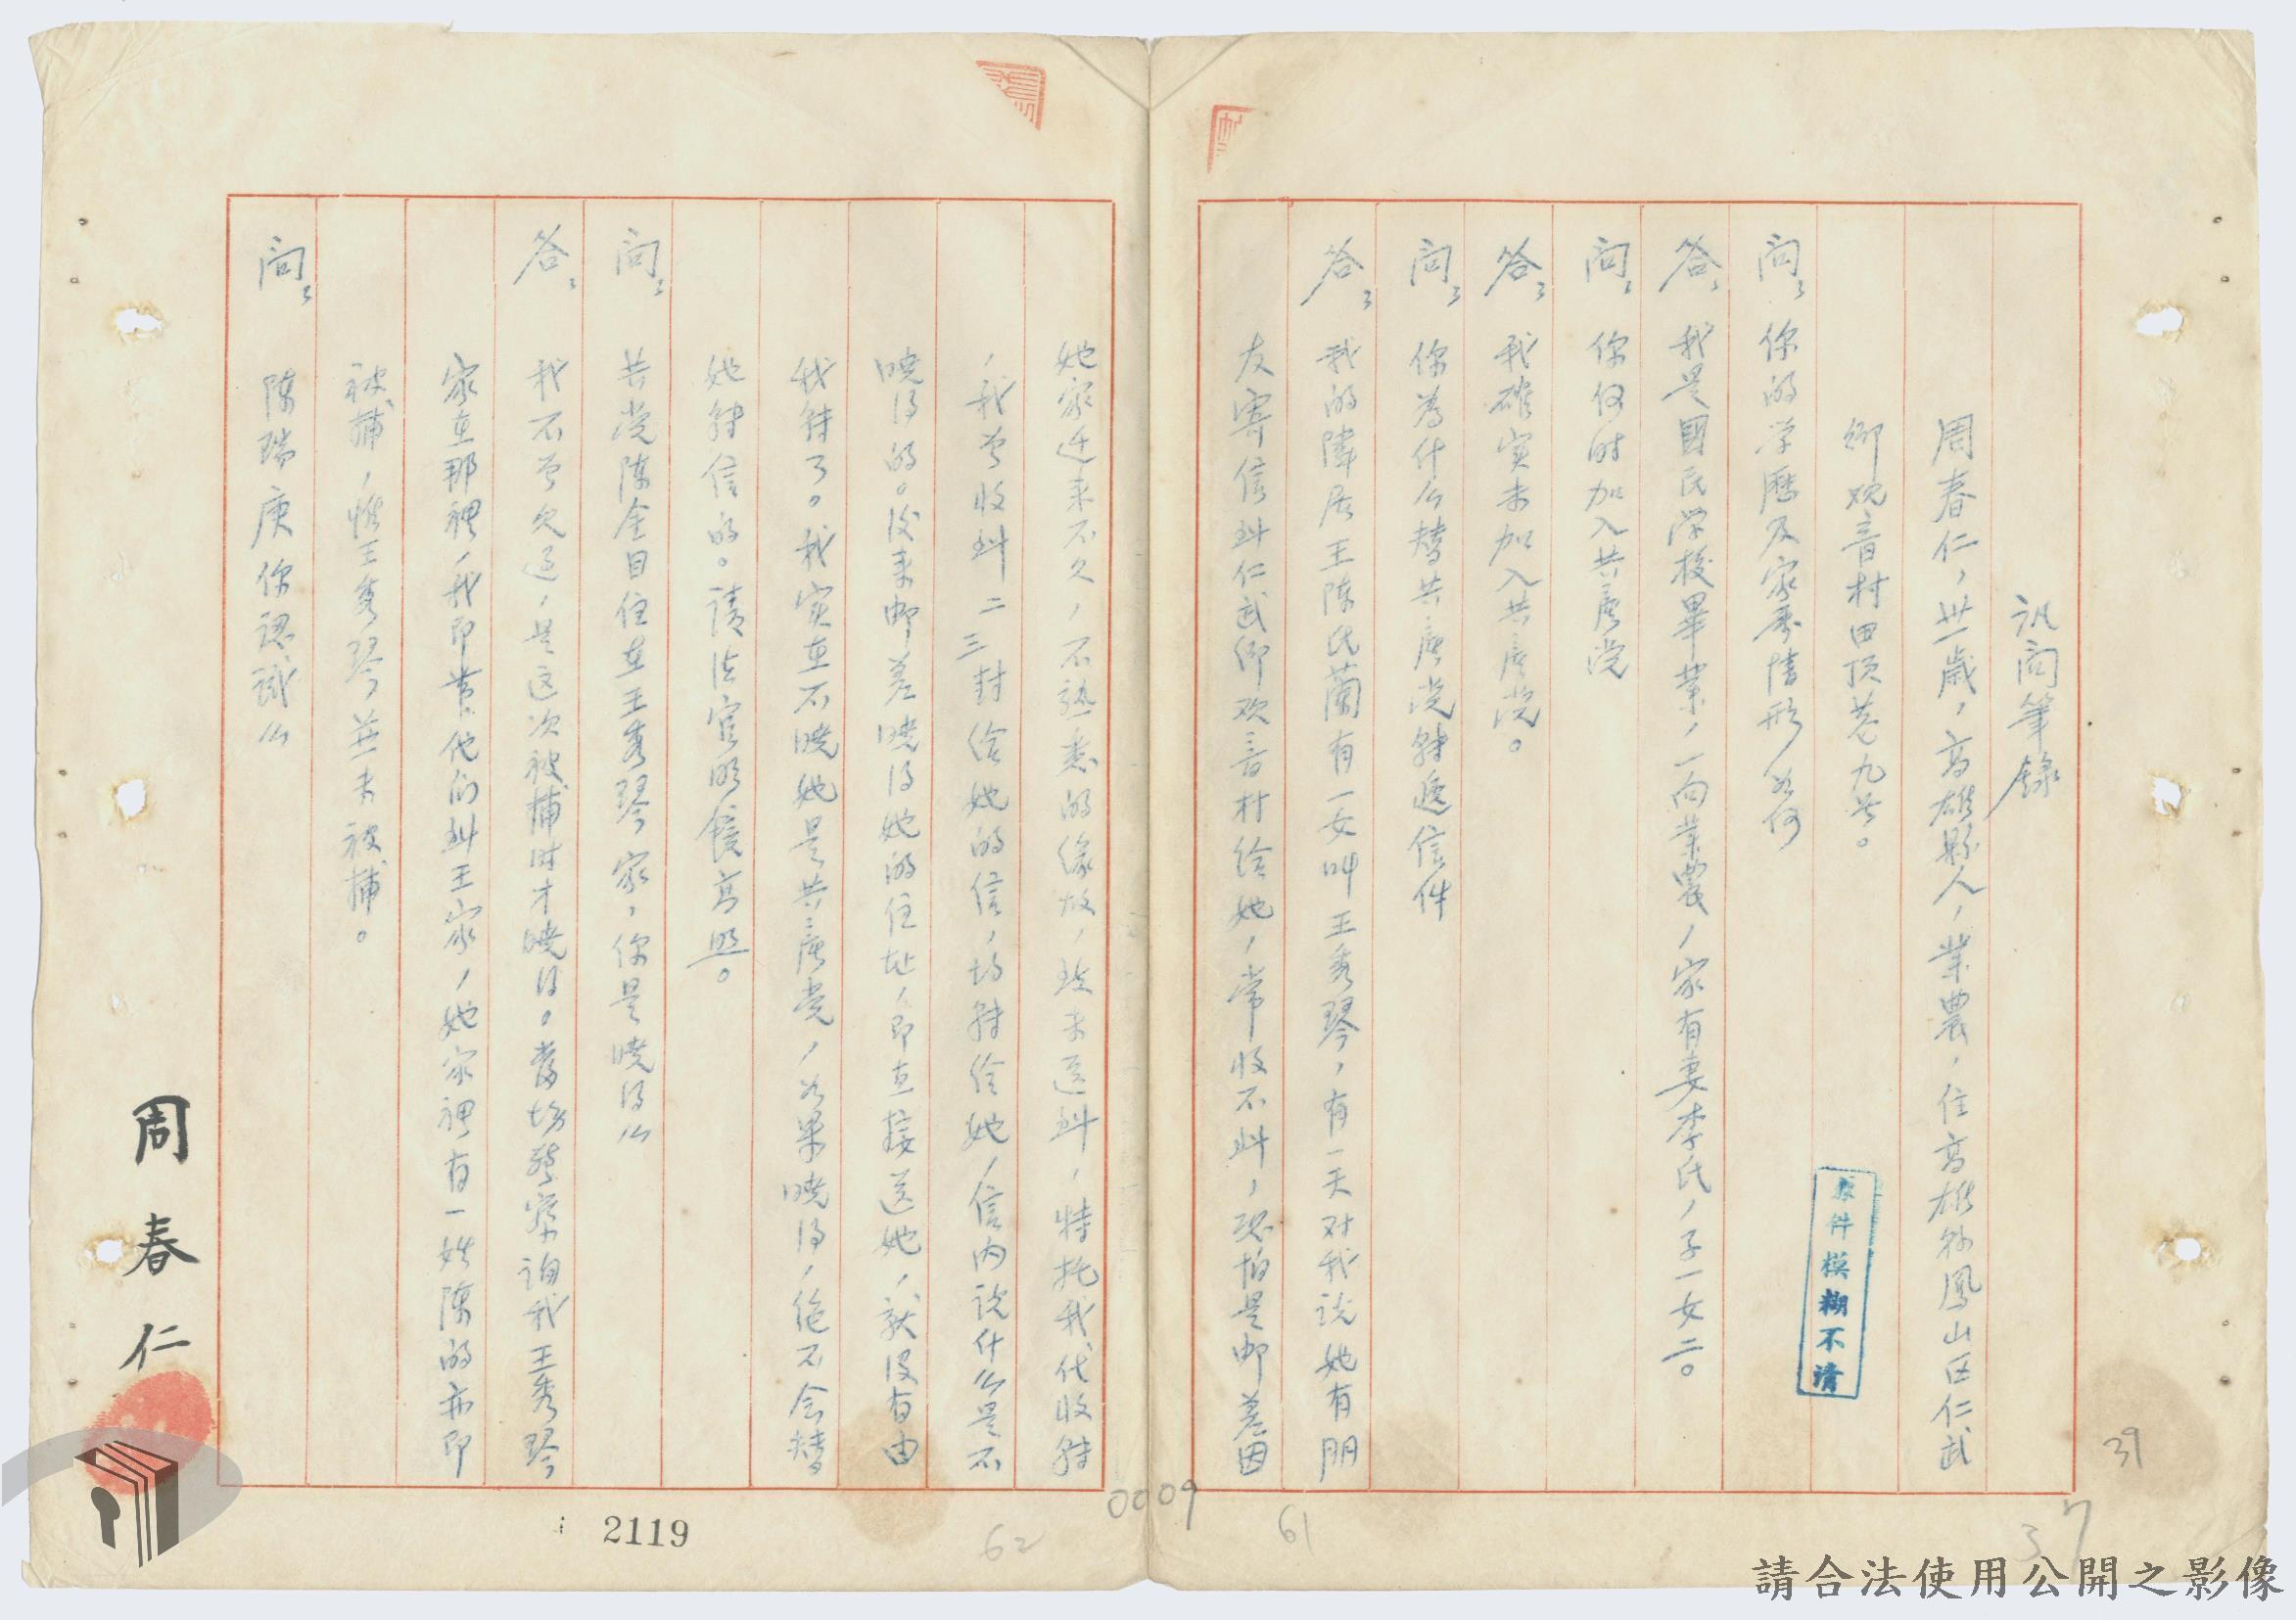 訊問筆錄
周春仁，卅一歲，高雄縣人，業農，住高雄縣鳳山区仁武
鄉观音村田頂巷九号。
問：你的学歷及家庭情形如何
答：我是國民学校畢業，一向業農，家有妻李氏，子一女二。
問：你何时加入共产党
答：我確实未加入共产党。
問：你為什么替共产党转遞信件
答：我的隣居王陳氏蘭有一女叫王秀琴，有一天对我说她有朋
友寄信到仁武鄉观音村给她，常收不到，恐怕是邮差因
她家迁来不久，不熟悉的缘故，致未送到，特托我代收转
，我曾收到二三封给她的信，均转给她，信内说什么是不
曉得的。後来邮差曉得她的住址，即直接送她，就沒有由
我转了。我实在不曉她是共产党，如果曉得，绝不会替
她转信的。請法官明镜高照。
問：共党陳全目住在王秀琴家，你是曉得么
答：我不曾見过，是这次被捕时才曉得。當场警察询我王秀琴
家在那裡，我即带他们到王家，她家裡有一姓陳的亦即
被捕，惟王秀琴並未被捕。
問：陳瑞庚你認識么
周春仁
原件模糊不清
2119
0009
62
61
39
37
請合法使用公開之影像